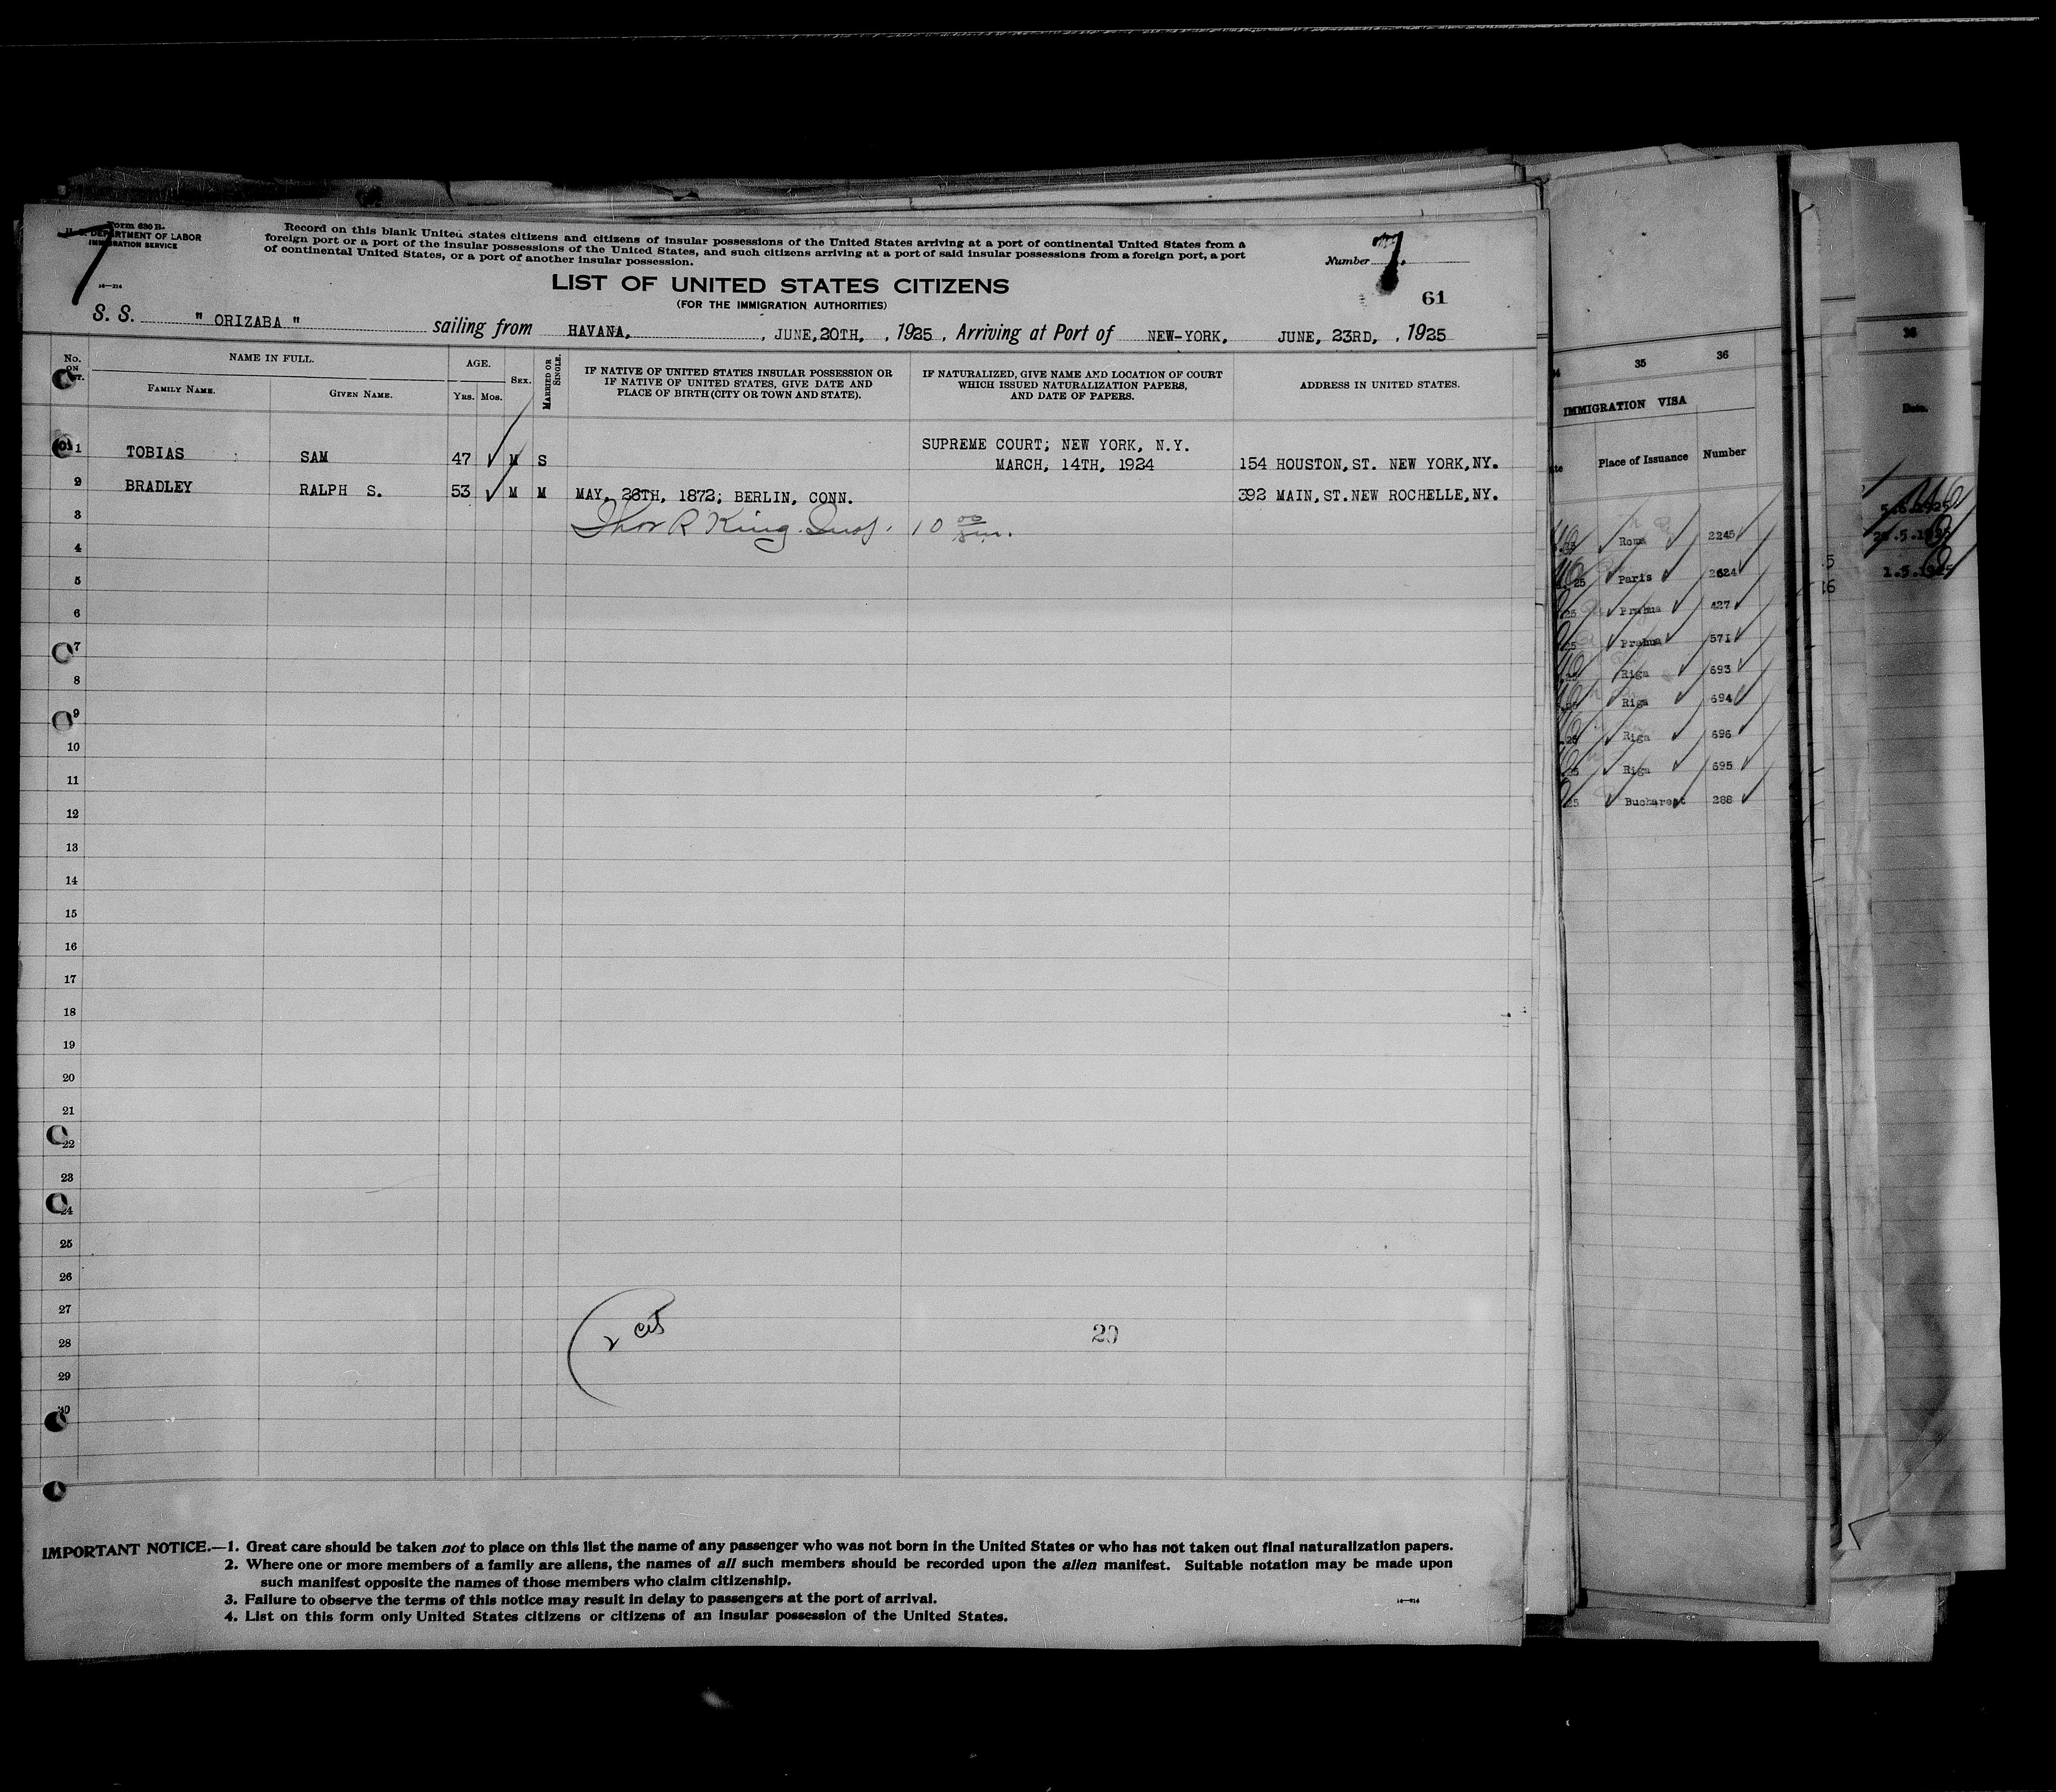 Form 630 B.
U. S. DEPARTMENT OF LABOR
IMMIGRATION SERVICE
Record on this blank United States citizens and citizens of insular possessions of the United States arriving at a port of continental United States from a
foreign port or a port of the insular possessions of the United States, and such citizens arriving at a port of said insular possessions from a foreign port, a port
of continental United States, or a port of another insular possession.
Number 7.
7
LIST OF UNITED STATES CITIZENS
(FOR THE IMMIGRATION AUTHORITIES)
61
S. S. " ORIZABA " sailing from HAVANA, , JUNE,20TH, , 1925 , Arriving at Port of NEW-YORK, JUNE, 23RD, , 1925
No. ON LIST. NAME IN FULL. AGE. SEX. MARRIED OR SINGLE.
FAMILY NAME. GIVEN NAME. YRS. MOS.
IF NATIVE OF UNITED STATES INSULAR POSSESSION OR
IF NATIVE OF UNITED STATES, GIVE DATE AND
PLACE OF BIRTH (CITY OR TOWN AND STATE).
IF NATURALIZED, GIVE NAME AND LOCATION OF COURT
WHICH ISSUED NATURALIZATION PAPERS,
AND DATE OF PAPERS.
ADDRESS IN UNITED STATES.
SUPREME COURT; NEW YORK, N.Y.
1 TOBIAS SAM 47 M S MARCH, 14TH, 1924 154 HOUSTON,ST. NEW YORK,NY.
2 BRADLEY RALPH S. 53 M M MAY, 26TH, 1872; BERLIN, CONN. 392 MAIN,ST.NEW ROCHELLE,NY.
3 Thos R King. Insp. 10 00
4
5
6
7
8
9
10
11
12
13
14
15
16
17
18
19
20
21
22
23
24
25
26
27
28 2 cit 20
29
30
IMPORTANT NOTICE.—1. Great care should be taken not to place on this list the name of any passenger who was not born in the United States or who has not taken out final naturalization papers.
2. Where one or more members of a family are aliens, the names of all such members should be recorded upon the alien manifest. Suitable notation may be made upon
such manifest opposite the names of those members who claim citizenship.
3. Failure to observe the terms of this notice may result in delay to passengers at the port of arrival.
4. List on this form only United States citizens or citizens of an insular possession of the United States.
35 36
IMMIGRATION VISA
Place of Issuance Number
Roma 2245
Paris 2624
Prahua 427
Prahua 571
Riga 693
Riga 694
Riga 696
Riga 695
Bucharest 288
Date.
5.6.1925
1.5.1925